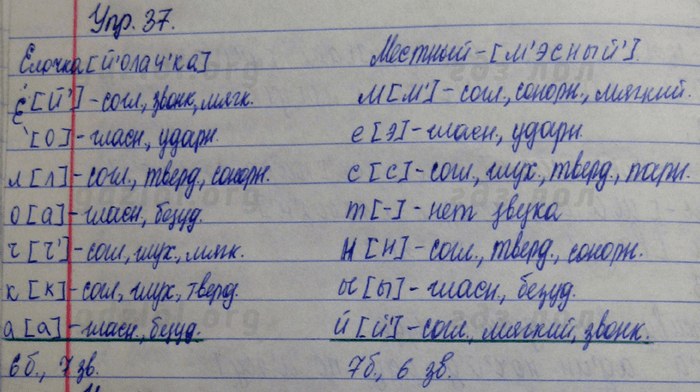 Упр. 37.
Ёлочка [й'олач'ка]
ё [й'] - согл, звонк, мягк.
[о] - гласн, ударн.
л [л] - согл, тверд, сонорн.
о [а] - гласн, безуд.
ч [ч'] - согл, глух, мягк.
к [к] - согл, глух, тверд.
а [а] - гласн., безуд.
6 б., 7 зв.
Местный - [м'эсный']
м [м'] - согл, сонорн., мягкий.
е [э] - гласн, ударн.
с [с] - согл, глух., тверд., парн.
т [-] - нет звука
н [н] - согл., тверд., сонорн.
ы [ы] - гласн, безуд.
й [й'] - согл, мягкий, звонк.
7б., 6 зв.